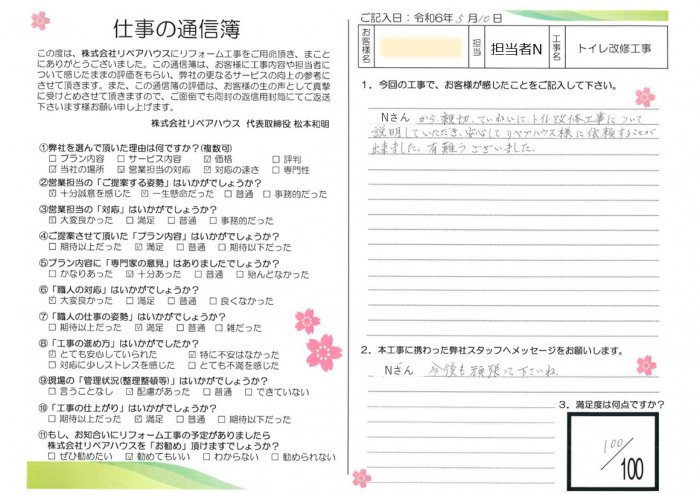 仕事の通信簿
この度は、株式会社リペアハウスにリフォーム工事をご用命頂き、まこと
にありがとうございました。この通信簿は、お客様に工事内容や担当者に
ついて感じたままの評価をもらい、弊社の更なるサービスの向上の参考に
させて頂きます。また、この通信簿の評価は、お客様の生の声として真摯
に受けとめさせて頂きますので、ご面倒でも同封の返信用封筒にてご返送
下さいます様お願い申し上げます。
株式会社リペアハウス 代表取締役 松本和明
①弊社を選んで頂いた理由は何ですか?(複数可)
□ プラン内容 □ サービス内容 ☑ 価格 □ 評判
☑ 当社の場所 ☑ 営業担当の対応 ☑ 対応の速さ □ 専門性
②営業担当の「ご提案する姿勢」はいかがでしょうか?
☑ 十分誠意を感じた ☑ 一生懸命だった □ 普通 □ 事務的だった
③営業担当の「対応」はいかがでしょうか?
☑ 大変良かった □ 満足 □ 普通 □ 事務的だった
④ご提案させて頂いた「プラン内容」はいかがでしょうか?
□ 期待以上だった ☑ 満足 □ 普通 □ 期待以下だった
⑤プラン内容に「専門家の意見」はありましたでしょうか?
□ かなりあった ☑ 十分あった □ 普通 □ 殆んどなかった
⑥「職人の対応」はいかがでしょうか?
☑ 大変良かった □ 満足 □ 普通 □ 良くなかった
⑦「職人の仕事の姿勢」はいかがでしょうか?
□ 期待以上だった ☑ 満足 □ 普通 □ 雑だった
⑧「工事の進め方」はいかがでしたか?
☑ とても安心していられた ☑ 特に不安はなかった
□ 対応に少しストレスを感じた □ とても不満を感じた
⑨現場の「管理状況(整理整頓等)」はいかがでしょうか?
□ 言うことなし ☑ 配慮があった □ 普通 □ できていない
⑩「工事の仕上がり」はいかがでしょうか?
□ 期待以上だった ☑ 満足 □ 普通 □ 期待以下だった
⑪もし、お知合いにリフォーム工事の予定がありましたら
株式会社リペアハウスを「お勧め」頂けますでしょうか?
□ ぜひ勧めたい ☑ 勧めてもいい □ わからない □ 勧められない
ご記入日:令和6年5月10日
お客様名
担当
担当者N
工事名
トイレ改修工事
1.今回の工事で、お客様が感じたことをご記入して下さい。
Nさん から親切、ていねいに、トイレ改修工事について
説明していただき、安心してリペアハウス様に依頼することが
出来ました。有難うございました。
2.本工事に携わった弊社スタッフへメッセージをお願いします。
Nさん 今後も頑張って下さいね
3.満足度は何点ですか?
100/100